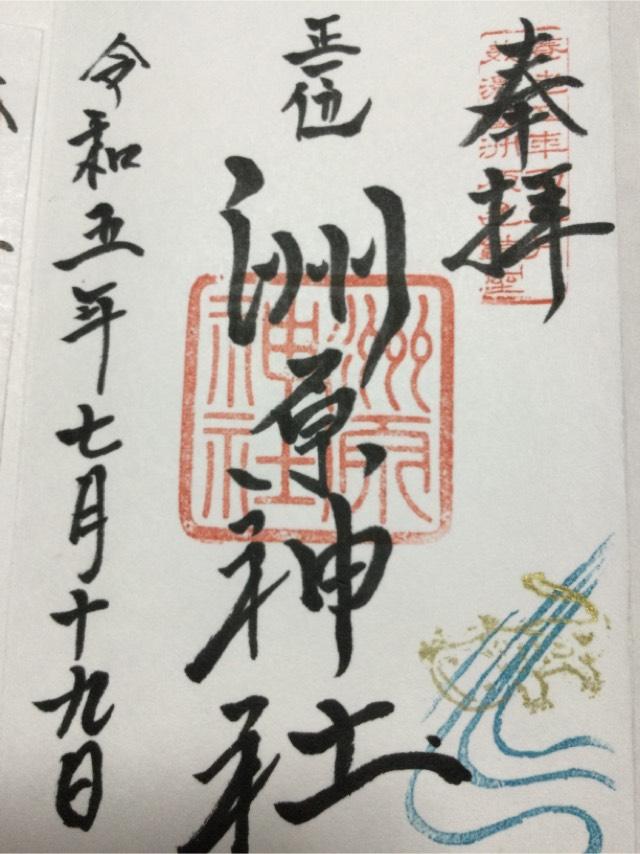 奉拝
正一位
洲原神社
令和五年七月十九日
洲原
神社